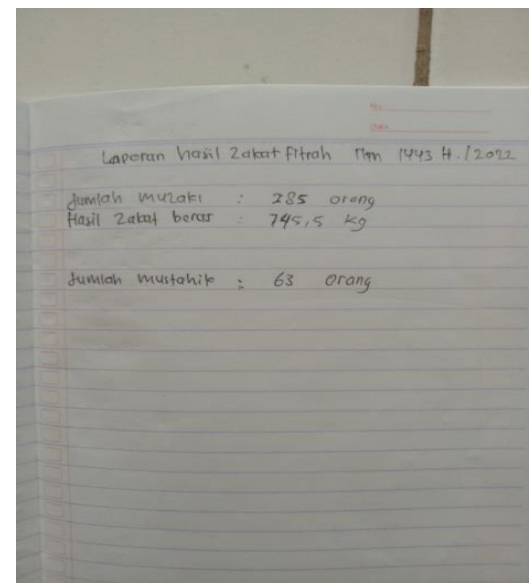 No.
Date
Laporan hasil Zakat fitrah Thn 1443 H. / 2022
Jumlah muzaki : 285 orang
Hasil Zakat beras : 745,5 kg
Jumlah mustahik : 63 orang